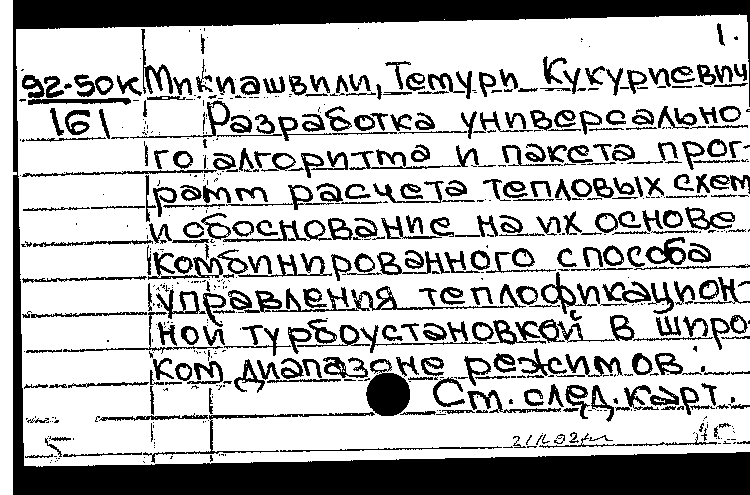 1.
92-50к Микиашвили, Темури Кукуриевич
161 Разработка универсально-
го алгоритма и пакета прог-
рамм расчета тепловых схем
и обоснование на их основе
комбинированного способа
управления теплофикацион-
ной турбоустановкой в широ-
ком диапазоне режимов.
Ст. след. карт.
5